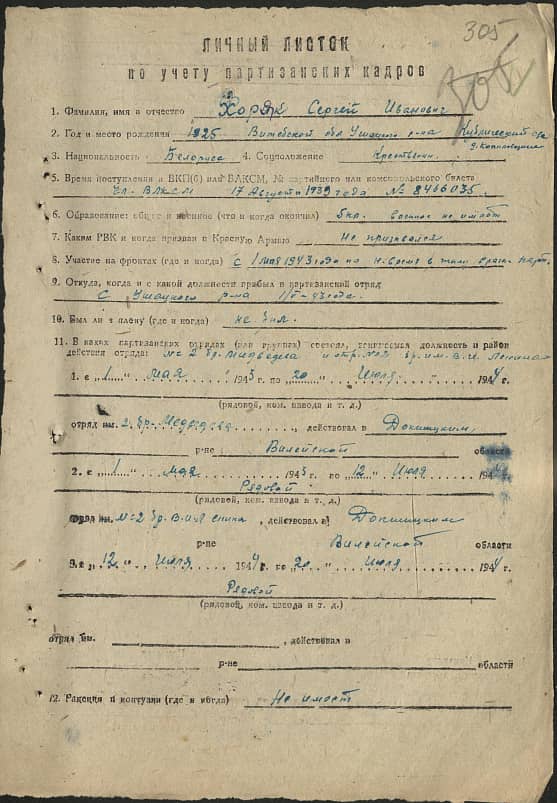 305
ЛИЧНЫЙ ЛИСТОК
по учету партизанских кадров
1. Фамилия, имя и отчество Сергей Иванович
2. Год и место рождения 1925 Витебской обл Ушацкого р-на
3. Национальность Белорусс 4. Соцположение Крестьянин
5. Время поступления в ВКП(б) или ВЛКСМ, № партийного или комсомольского билета
Чл. ВЛКСМ 17 Августа 1939 года № 8466035
6. Образование: общее и военное (что и когда окончил) 5кл. военное не имеет
7. Каким РВК и когда призван в Красную Армию Не призвался
8. Участие на фронтах (где и когда) с 1 мая 1943 года по н-время в тылу врага парт.
9. Откуда, когда и с какой должности прибыл в партизанский отряд
С Ушацкого р-на 1/V-43 года.
10. Был ли в плену (где и когда) не был.
11. В каких партизанских отрядах (или группах) состоял, занимаемая должность и район
действия отряда: №2 бр. Медведева и отр. №2 бр. им. В.И. Ленина
1. с „1" мая 1943 г. по „20" Июля 1944 г.
(рядовой, ком. взвода и т. д.)
отряд им. 2. бр. Медведева, действовал в Докшицким,
р-не Вилейской области
2. с „1" мая 1943 г. по „12" Июля 1944 г.
Рядовой
(рядовой, ком. взвода и т. д.)
отряд им. №2 бр. В.И. Ленина, действовал в Докшицким
р-не Вилейской области
3. с „12" Июля 1944 г. по „20" Июля 1944 г.
Рядовой
(рядовой, ком. взвода и т. д.)
отряд им. , действовал в
р-не области
12. Ранения и контузии (где и когда) Не имеет